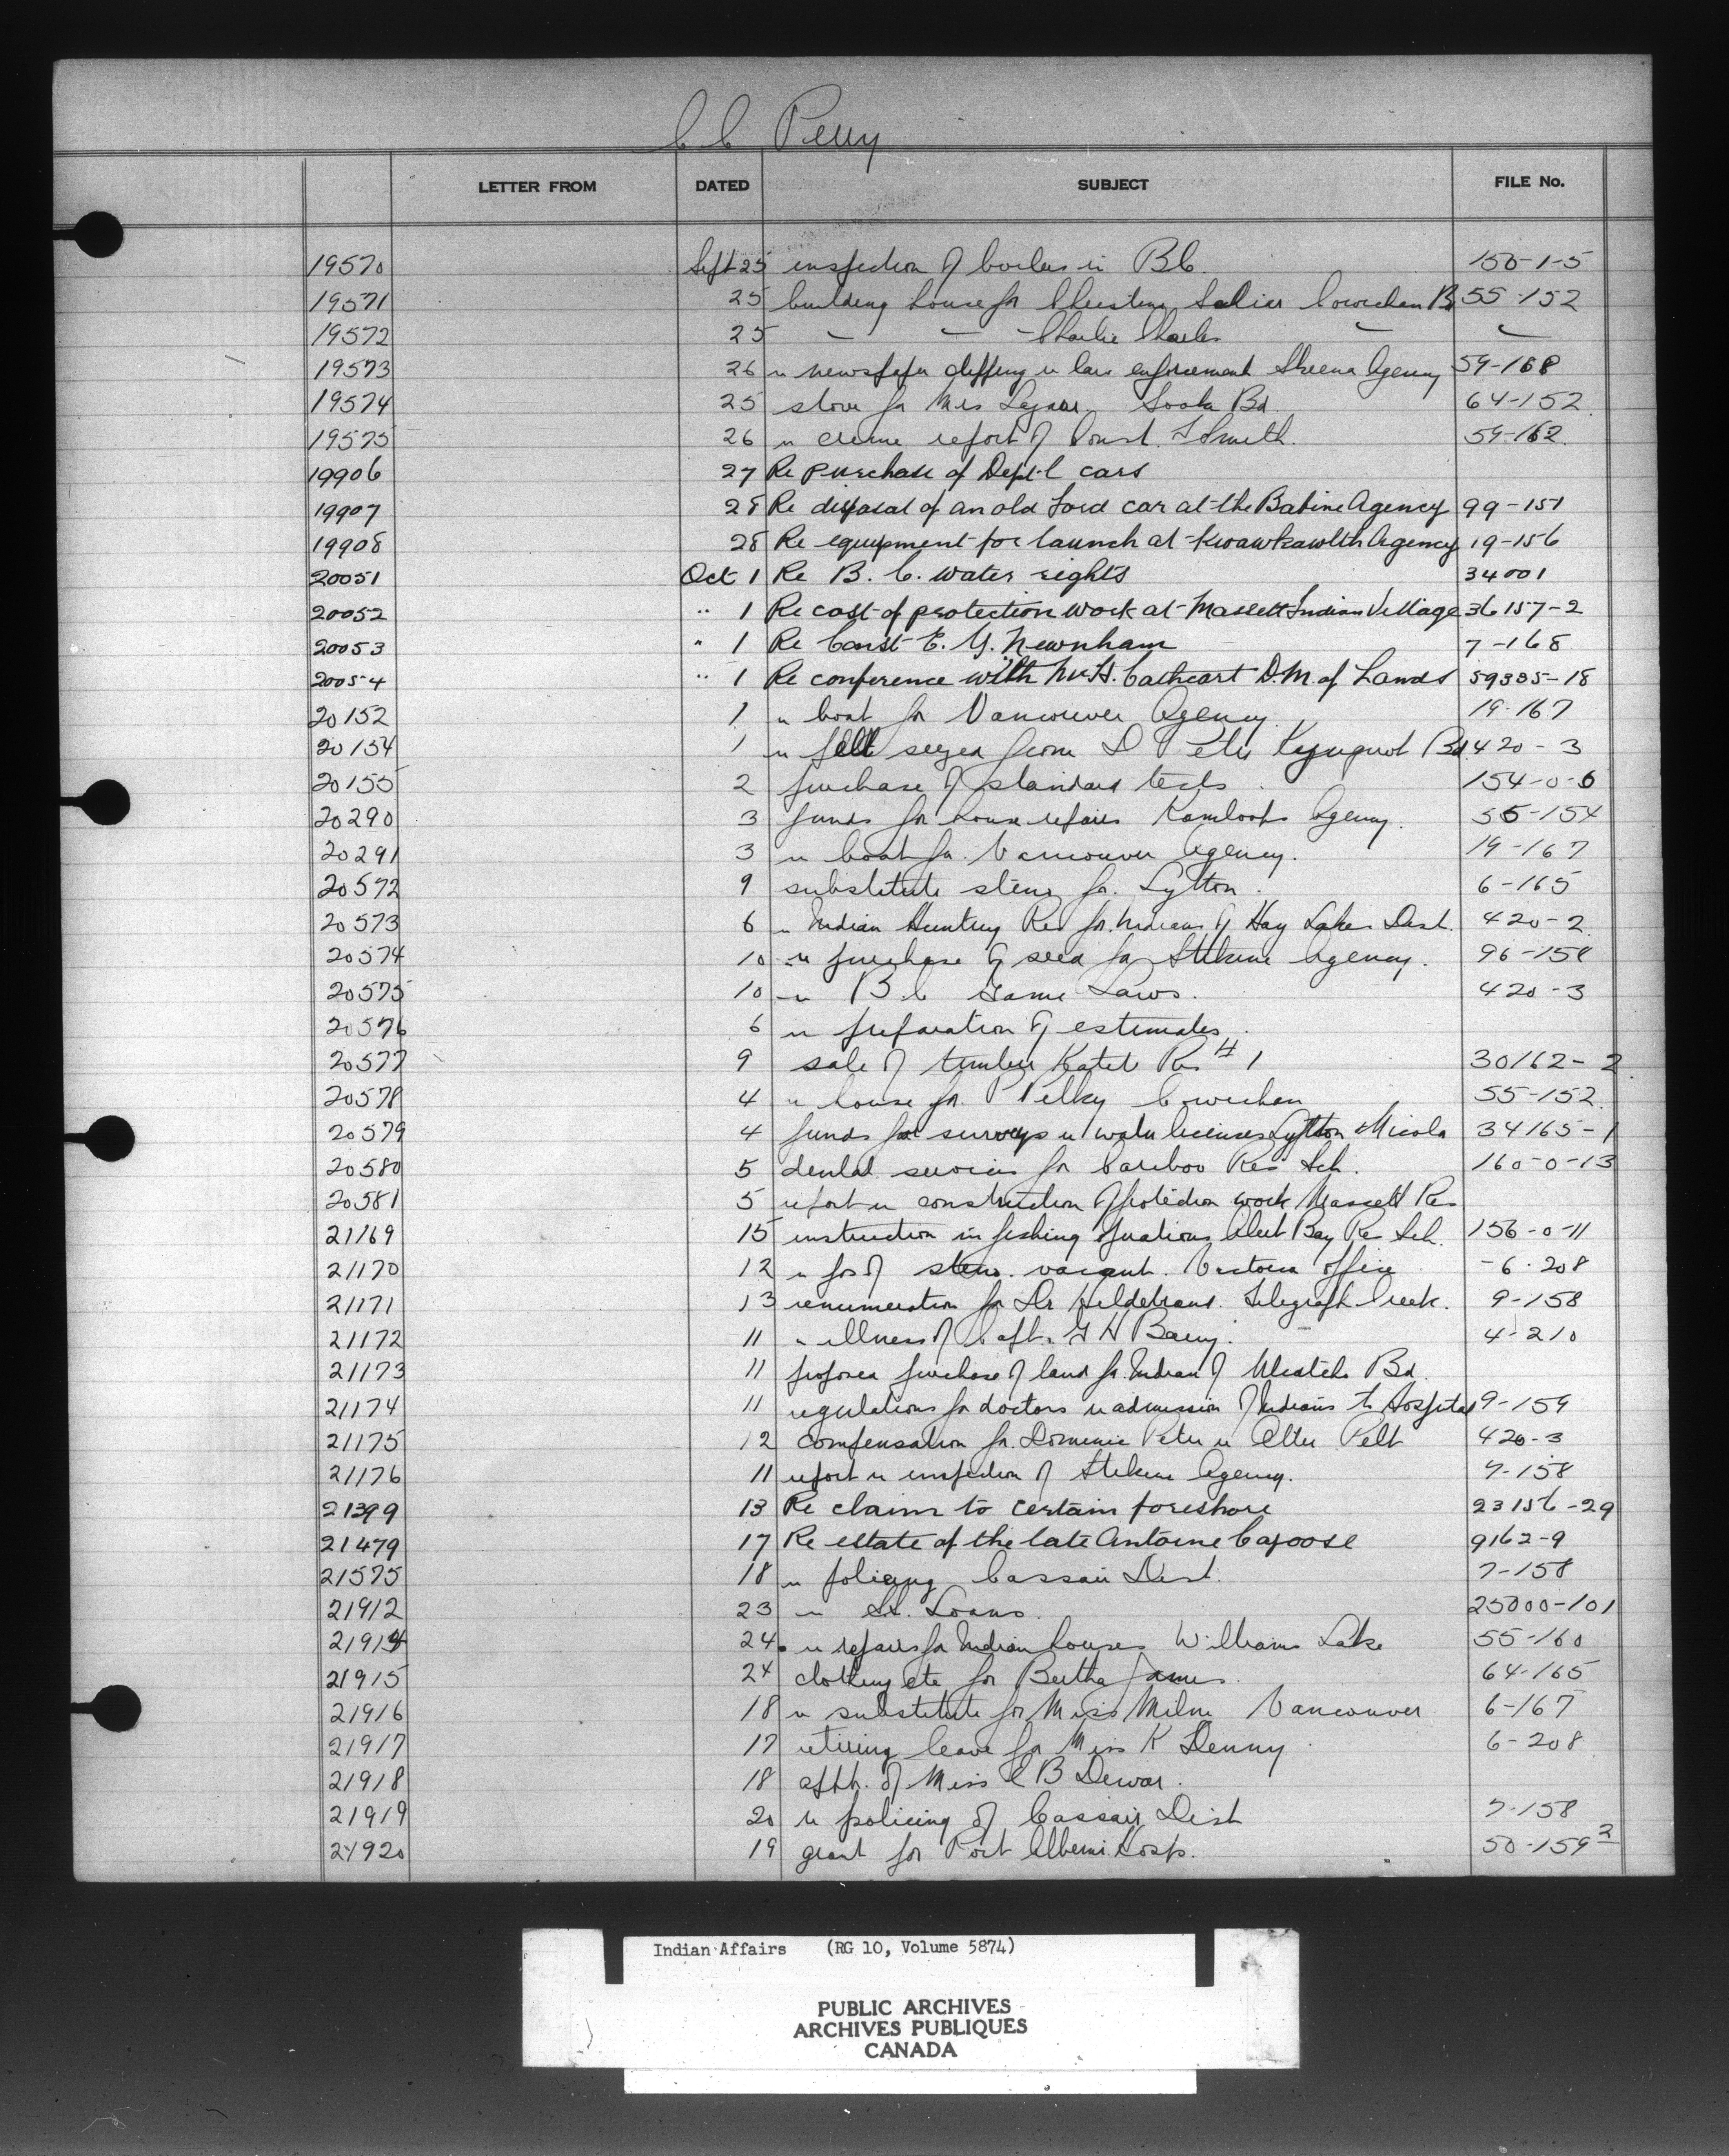 C C Perry
LETTER FROM DATED SUBJECT FILE No.
19570 Sept 25 inspection of boilers in BC 150-1-5
19571 25 building house for Christine Cowichan Bd 55-152
19572 25 — — - Charlie Charles — —
19573 26 re newspaper clipping re law enforcement Skeena Agency 59-168
19574 25 stove for Mrs Lazare Sooke Bd 64-152
19575 26 re crime report of Const. Smith. 59-162.
19906 27 Re purchase of Dept-l cars
19907 28 Re disposal of an old Ford car at the Babine Agency 99-151
19908 28 Re equipment for launch at Kwawkawlth Agency 19-156
20051 Oct 1 Re B. C. water rights 34001
20052 " 1 Re cost of protection work at Massett Indian Village 36157-2
20053 " 1 Re Const E. G. Newnham 7-168
20054 " 1 Re conference with Mr H. Cathcart D.M. of Lands 59335-18
20152 1 re boat for Vancouver Agency. 19-167
20154 1 re pelt seized from D Peter Kyuquot Bd. 420-3
20155 2 purchase of standard tests. 154-0-6
20290 3 funds for house repairs Kamloops Agency. 55-154
20291 3 re boat for Vancouver Agency. 19-167
20572 9 substitute steno for Lytton. 6-165
20573 6 re Indian Hunting Res for Indians of Hay Lakes Dist. 420-2
20574 10 re purchase of seed for Stikine Agency. 96-158
20575 10 re B C Game Laws. 420-3
20576 6 re preparation of estimates.
20577 9 sale of timber Katit Res # 1 30162-2
20578 4 re house for P Pelky Cowichan 55-152.
20579 4 funds for surveys re water licenses Lytton & Nicola 34165-1
20580 5 dental services for Cariboo Res Sch. 160-0-13
20581 5 report re construction of protection work Massett Res
21169 15 instruction in fishing operations Alert Bay Res Sch. 156-0-11
21170 12 re pos of steno. vacant. Victoria office -6-208
21171 13 renumeration for Dr Hildebrand. Telegraph Creek. 9-158
21172 11 re illness of Capt. G H Barry. 4-210
21173 11 proposed purchase of land for Indian of Bd.
21174 11 regulations for doctors re admission of Indians to Hospital 9-159
21175 12 compensation for Dominic Peter re Otter Pelt 420-3
21176 11 report re inspection of Stikine Agency. 7-158
21399 13 Re claim to certain foreshore 23156-29
21479 17 Re estate of the late Antoine Capoose 9162-9
21575 18 re policing Cassair Dist. 7-158
21912 23 re St. Loans. 25000-101
21914 24 re repairs for Indian houses Williams Lake 55-160
21915 24 clothing etc for Bertha James. 64-165
21916 18 re substitute for Miss Milne Vancouver 6-167
21917 17 retiring leave for Miss K Denny. 6-208
21918 18 appt. of Miss E B Dewar.
21919 20 re policing of Cassair Dist 7-158
21920 19 grant for Port Alberni Hosp. 50-159 2
Indian Affairs (RG 10, Volume 5874)
PUBLIC ARCHIVES
ARCHIVES PUBLIQUES
CANADA